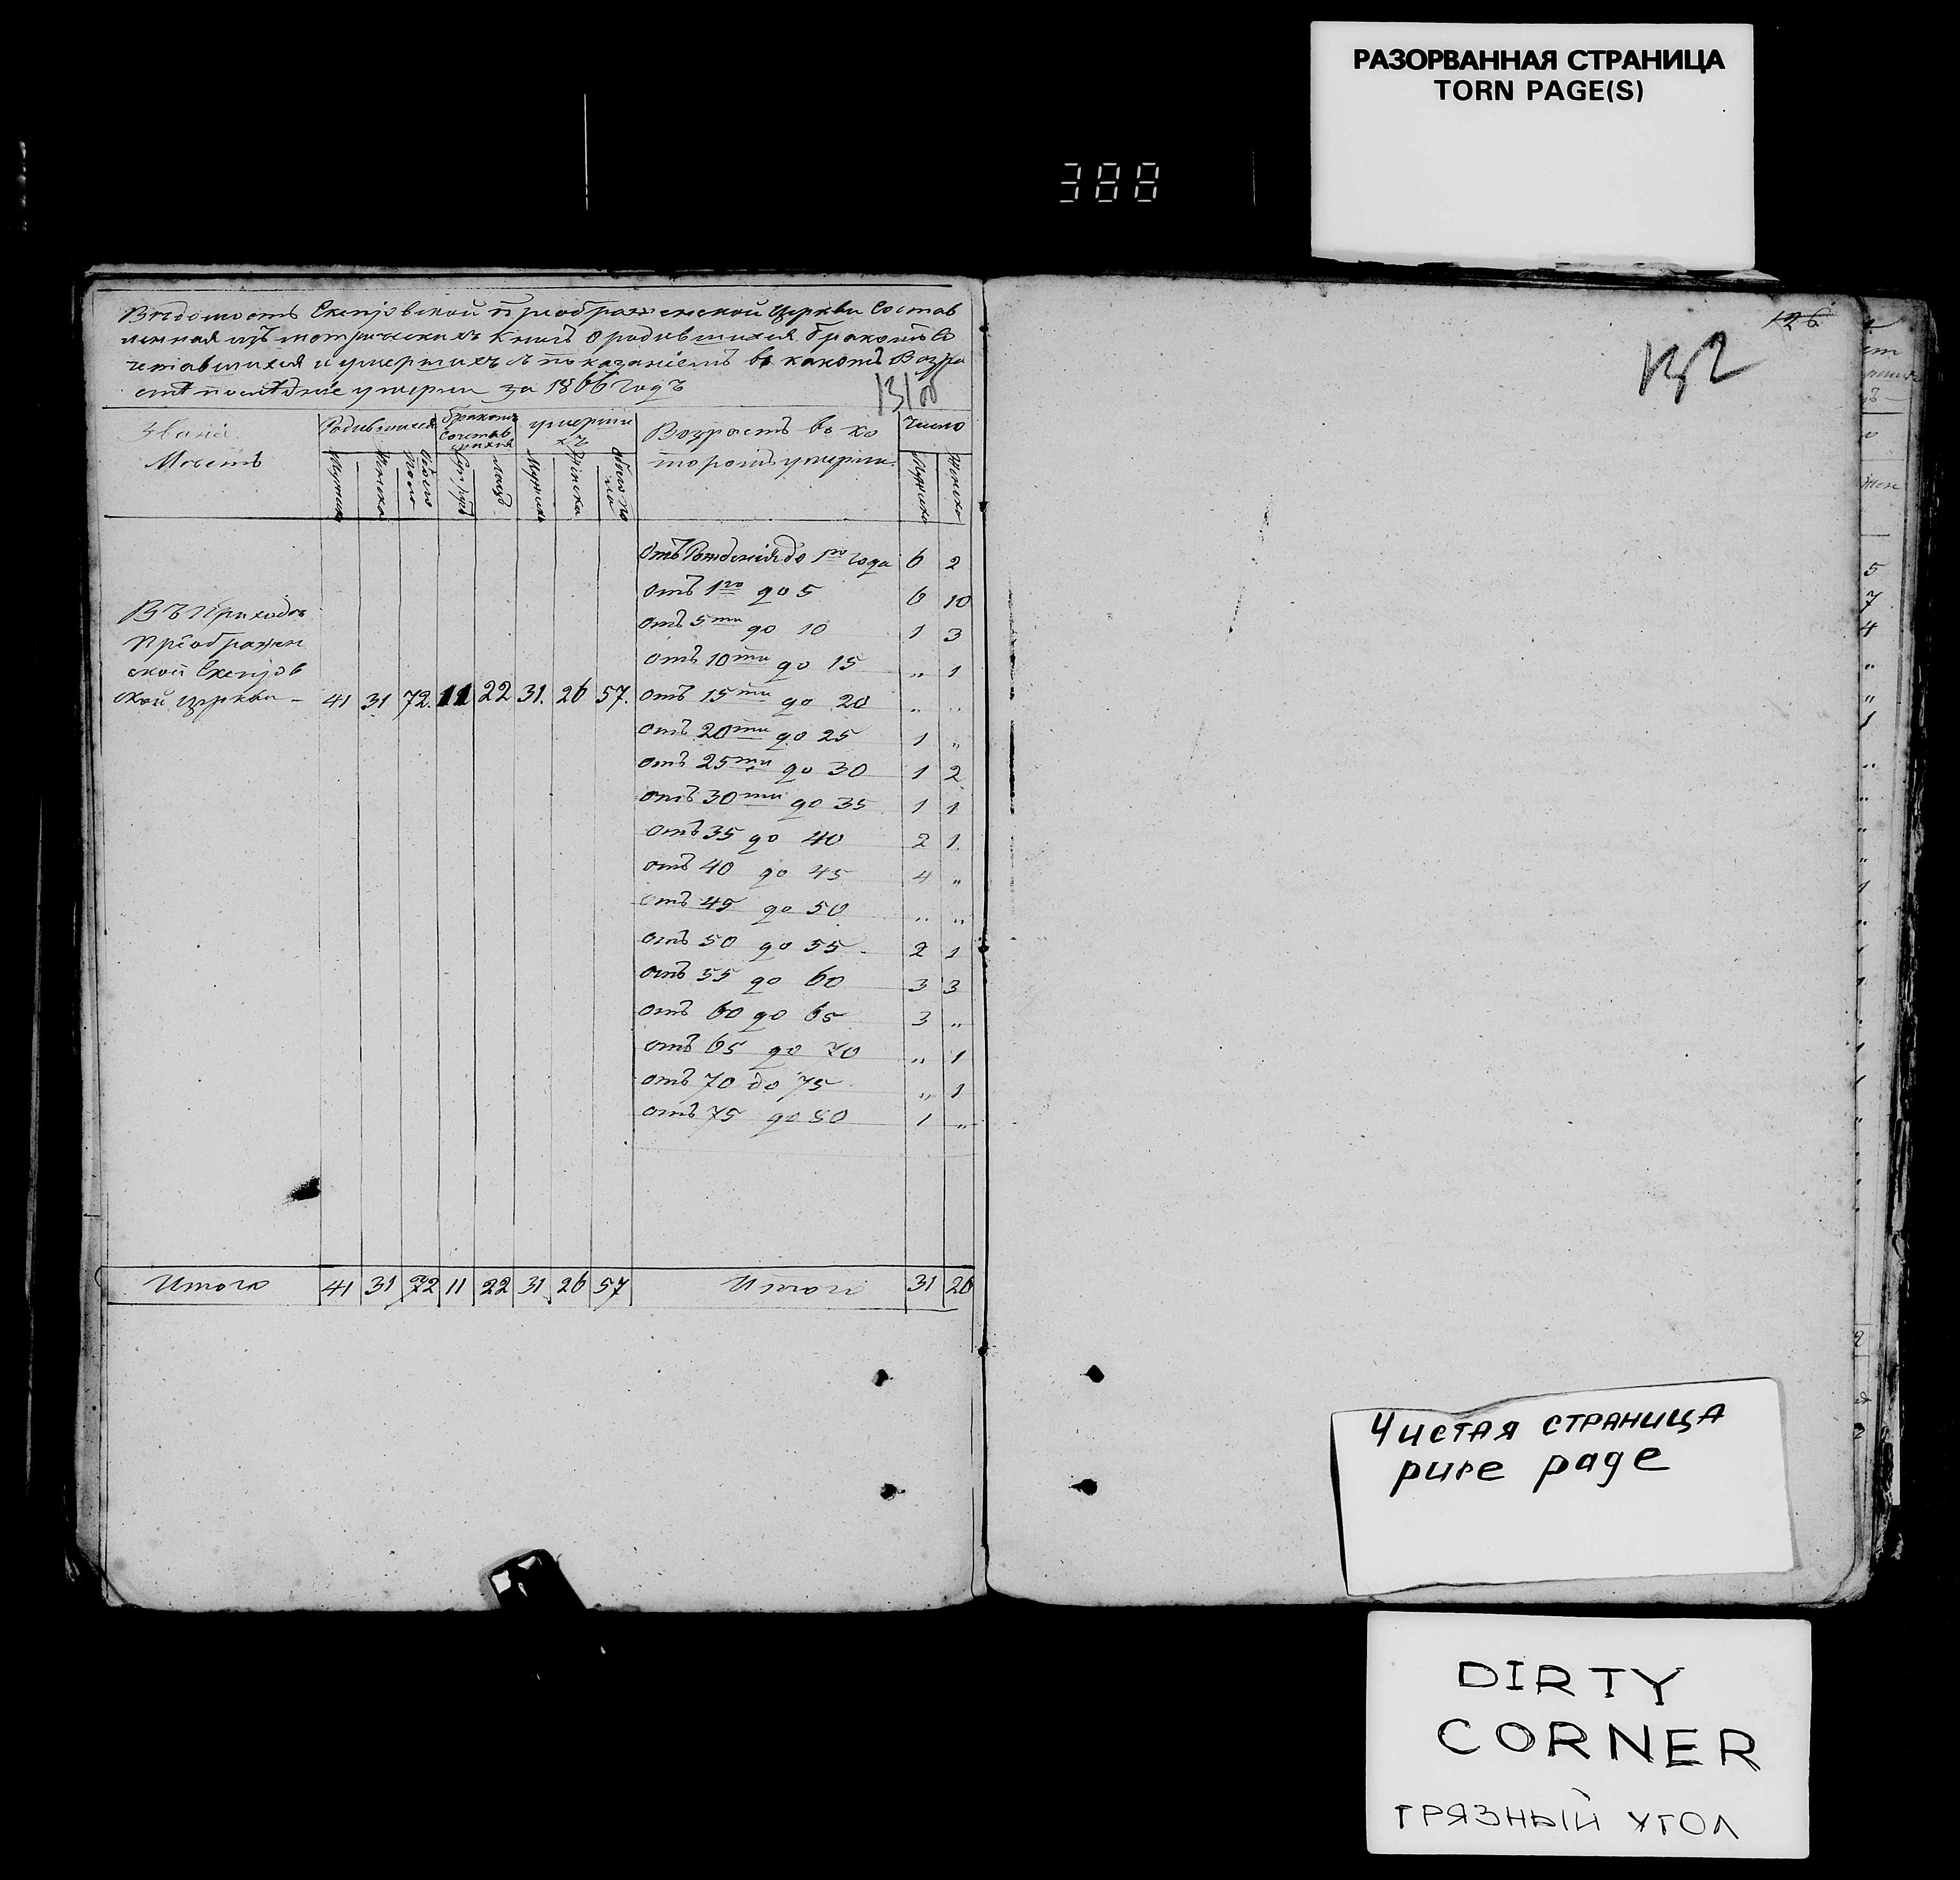 РАЗОРВАННАЯ СТРАНИЦА
TORN PAGE(S)
388
Ведомость Скепјовской Преображенской Церкви Состав
ленная изъ метрическихъ книгъ о родившихся бракомъ со
четавшихся и умершихъ съ показаніемъ въ какомъ Возра
стѣ послѣдніе умерли за 1866 годъ
131 об
126
132
Званіе Мѣстъ
Родившихся
Бракомъ Сочетавшихся
умершихъ
Возрастъ въ ко
торомъ умерли
Число
Мужска Женска Обоего Пола Супруж Лицъ Мужска Женска Обоего Пола Мужска Женска
Отъ Рожденія до 1го года 6 2
отъ 1го до 5 6 10
отъ 5ти до 10 1 3
отъ 10ти до 15 „ 1
Въ Приходѣ
Преображен
ской
ской церкви - 41 31 72. 11 22 31. 26 57. отъ 15ти до 20 „ „
отъ 20ти до 25 1 „
отъ 25ти до 30 1 2
отъ 30ти до 35 1 1
отъ 35 до 40 2 1.
отъ 40 до 45 4 „
отъ 45 до 50 „ „
отъ 50 до 55 2 1
отъ 55 до 60 3 3
отъ 60 до 65 3 „
отъ 65 до 70 „ 1
отъ 70 до 75 „ 1
отъ 75 до 80 1 „
Итого 41 31 72 11 22 31 26 57 Итого 31 26
Чистая страница
pure page
DIRTY
CORNER
ГРЯЗНЫЙ УГОЛ